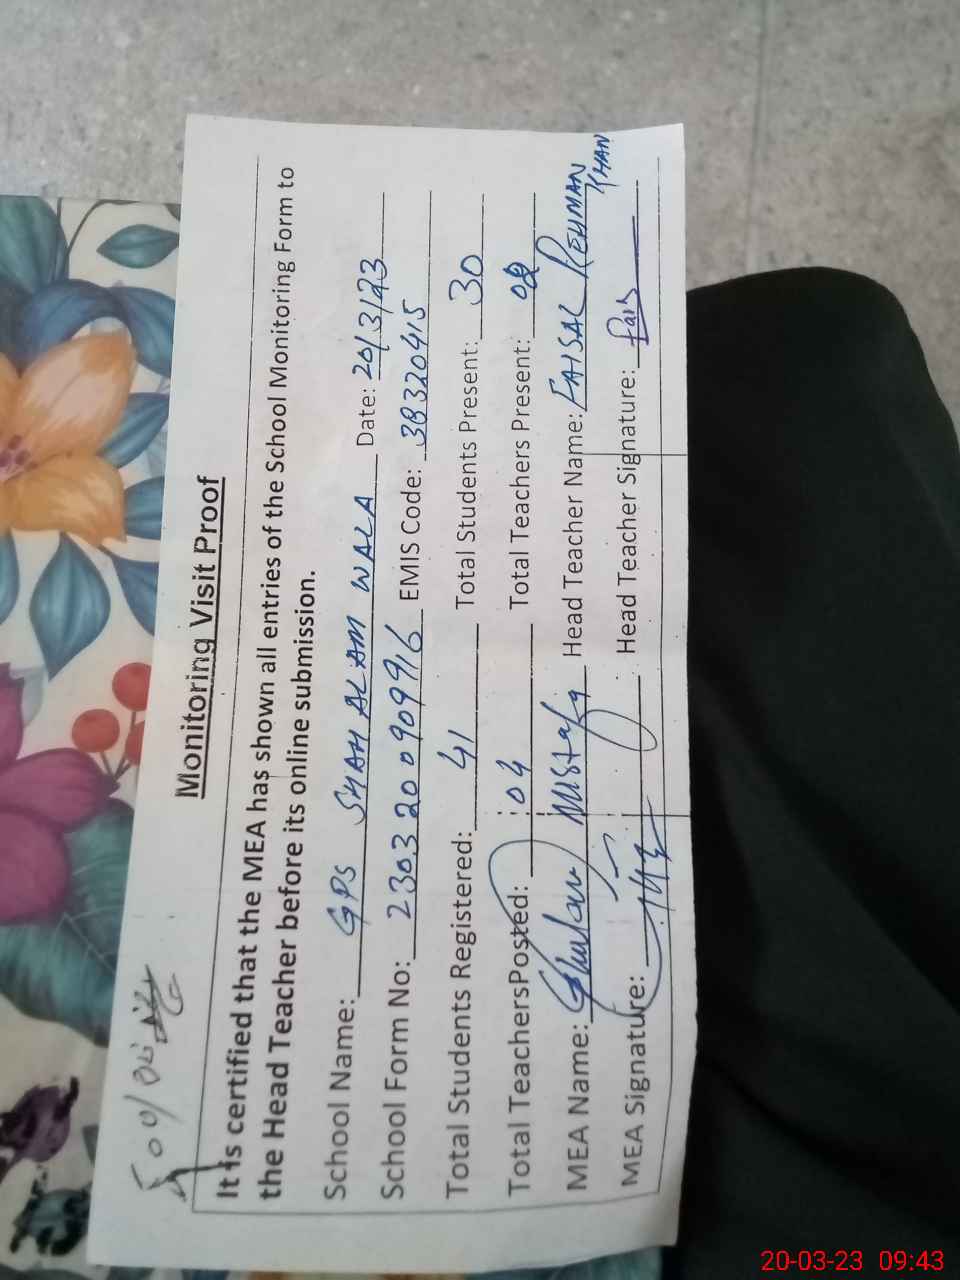 Monitoring Visit Proof
It is certified that the MEA has shown all entries of the School Monitoring Form to
the Head Teacher before its online submission.
School Name: GPS SHAH ALAM WALA Date: 20/3/23
School Form No: 2303200909916 EMIS Code: 38320415
Total Students Registered: 41 Total Students Present: 30
Total TeachersPosted: 04 Total Teachers Present:
MEA Name: Ghulam Mustafa Head Teacher Name: FAISAL REHMAN KHAN
MEA Signature: Head Teacher Signature:
20-03-23 09:43